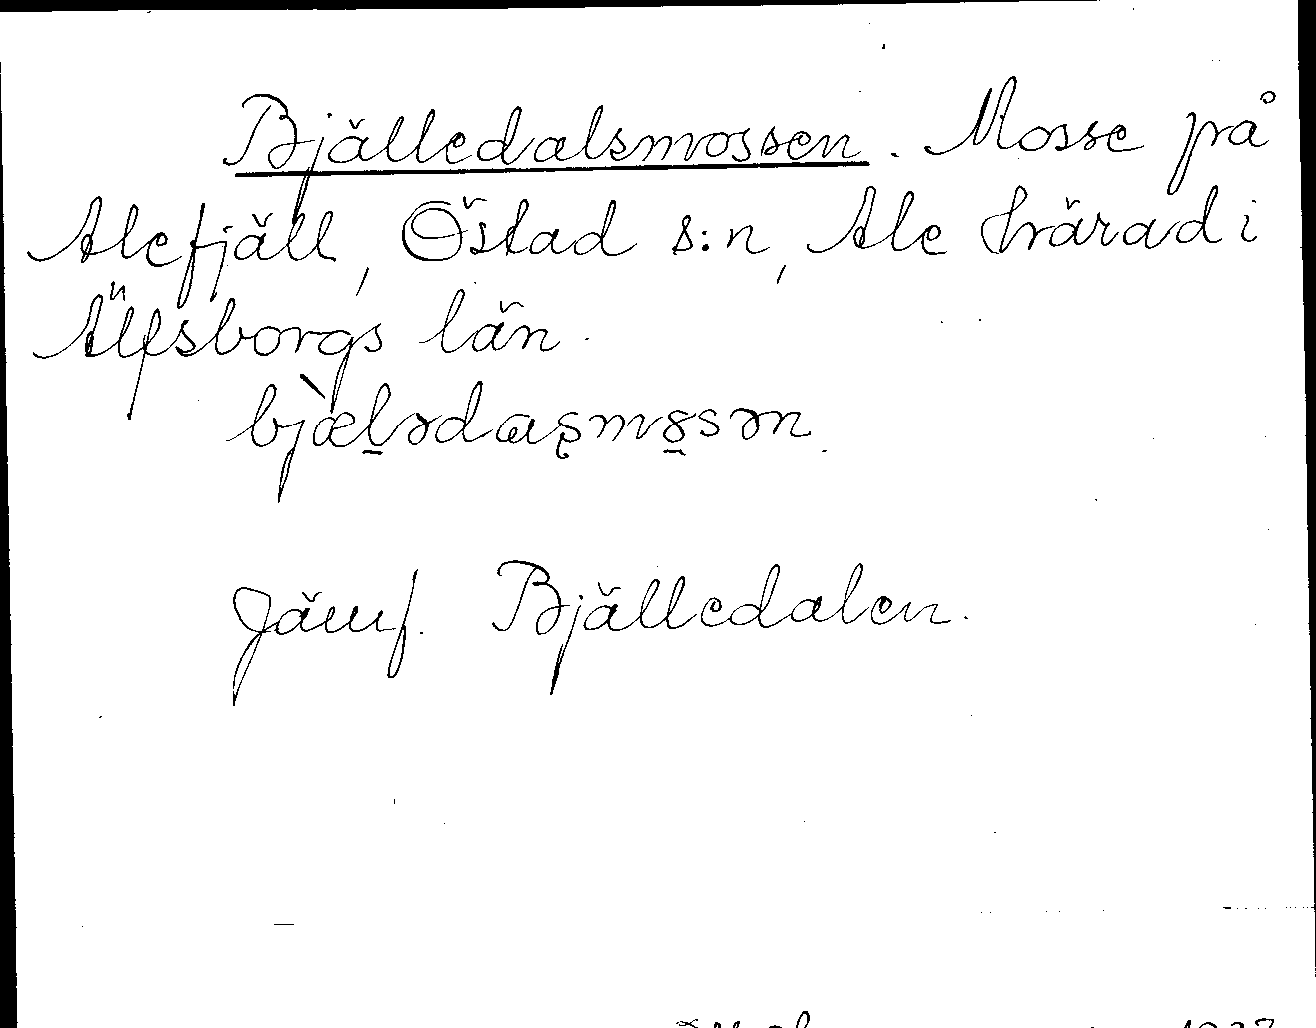 Bjälledalsmossen. Mosse på
Alefjäll, Östad s:n, Ale härad i
Älfsborgs län.
bjæ̀l̠ədaʂmo̠sən.
Jämf. Bjälledalen.